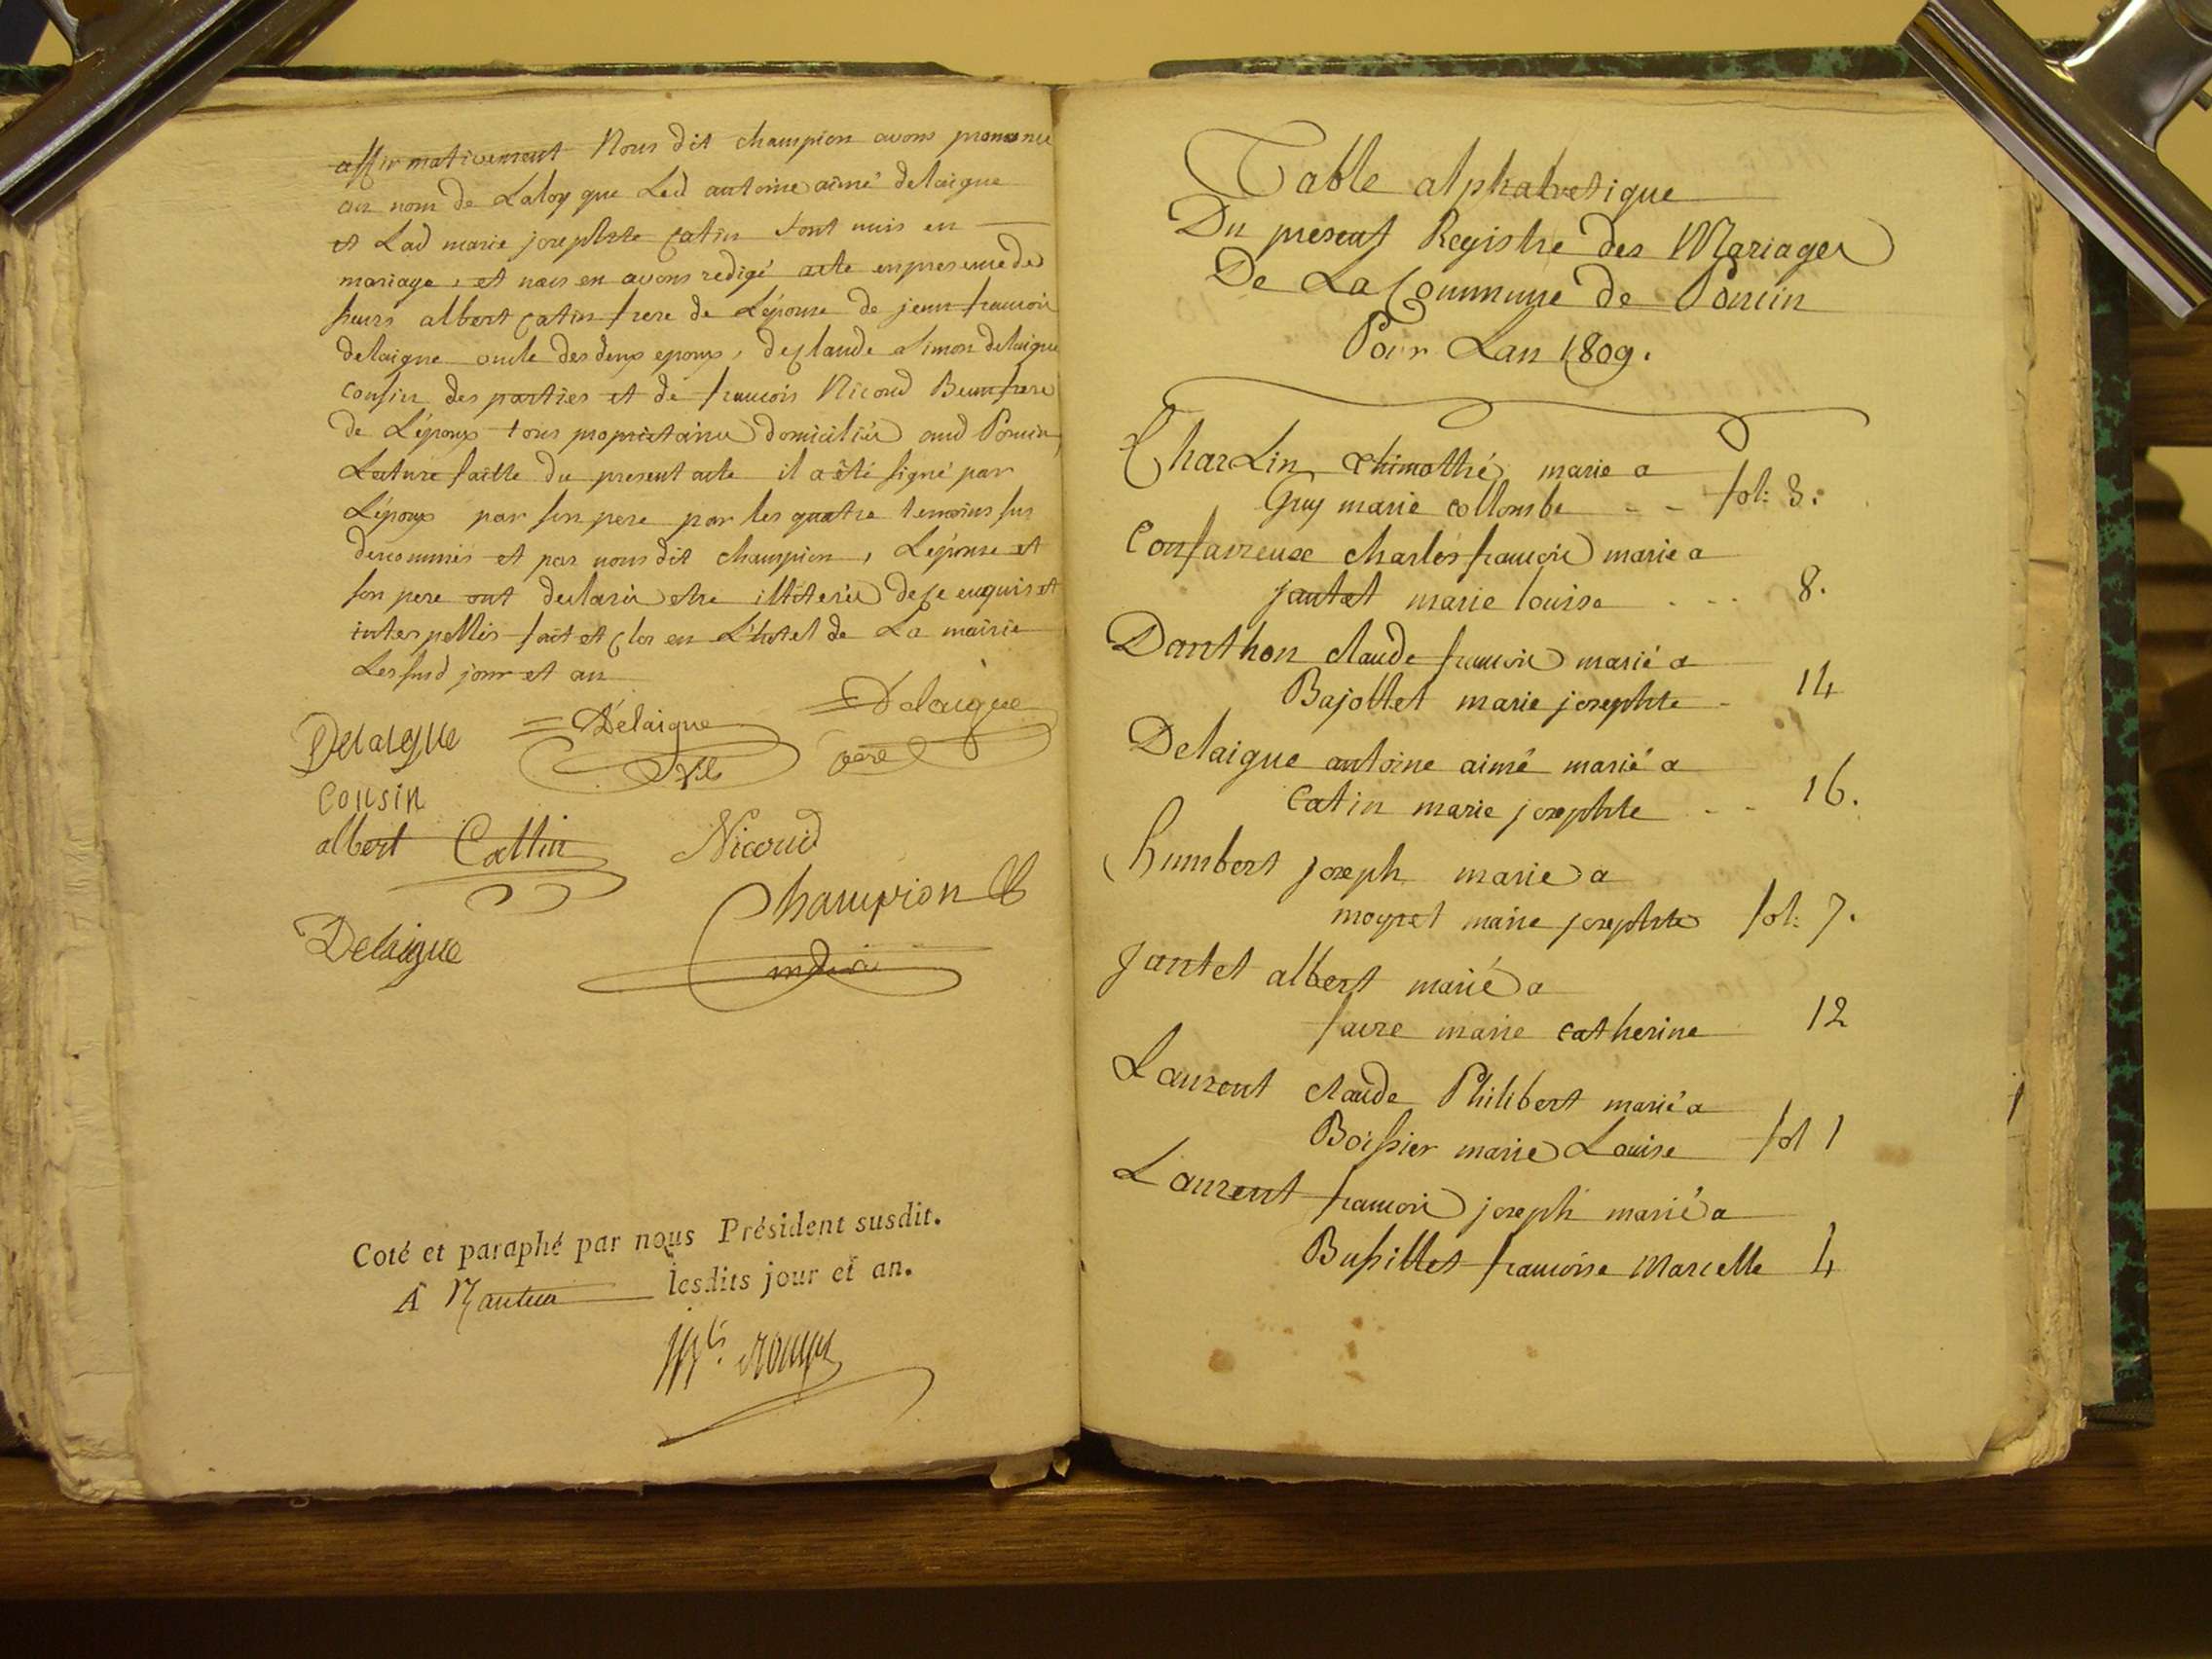 affirmativement Nous dit champion avons prononcé
au nom de La loy que Led antoine aimé delaigue
et Lad marie josephte Catin sont unis en
mariage, et nous en avons redigé acte en presence des
sieurs albert Catin frere de L'épouse de jean francois
delaigue oncle des deux epoux, de Claude Simon delaigue
cousin des parties et de francois Nicoud Beaufrere
de L'époux tous proprietaires domiciliés aud Poncin
Lecture faitte du present acte il a été signé par
L'époux par son pere par les quatre temoins sus
denommés et par nous dit champion, L'épouse et
son pere ont declarés etre illiterés de ce enquis et
interpellés fait et Clos en L'hotel de La mairie
Les susd jour et an
Delaigue =Delaigue =Delaigue
fils pere
Cousin
albert Cattin Nicoud
Champion
Delaigue
Coté et paraphé par nous Président susdit.
A Nantua lesdits jour et an.
Table alphabetique
Du present Registre des Mariages
De La Commune de Poncin
Pour Lan 1809.
CharLin thimothé marie a
Guy marie collombe - - fol: 3.
Confavreuse charles francois marie a
jantet marie louise . . . 8.
Danthon claude francois marié a
Bajollet marie josephte - 14
Delaigue antoine aimé marié a
Catin marie josephte - - 16.
humbert joseph marie a
moyret marie josephte fol: 7.
jantet albert marié a
favre marie catherine 12
Laurent claude Philibert marié a
Boissier marie Louise fol 1
Laurent francois joseph marié a
Bussillet francoise Marcelle 4